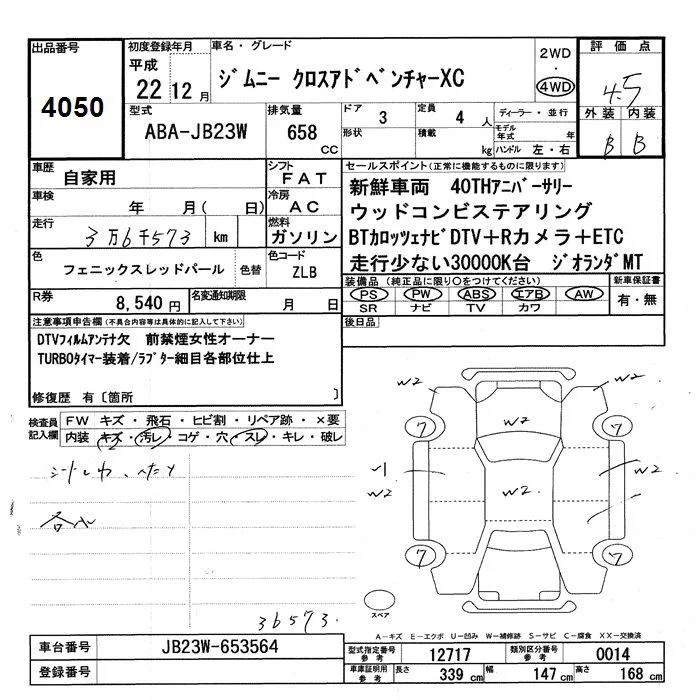 出品番号
4050
初度登録年月
平成
22 12 月
車名・グレード
ジムニー クロスアドベンチャーXC
2WD
・
4WD
評価点
4.5
外装 内装
B B
型式
ABA-JB23W
排気量
658
CC
ドア
3
形状
定員
4 人
積載
kg
ディーラー・並行
モデル年式 年
ハンドル 左・右
車歴
自家用
シフト
FAT
車検
年 月( 日)
冷房
AC
走行
3万6千573 km
燃料
ガソリン
色
フェニックスレッドパール
色替
色コード
ZLB
R券
8,540 円
名変通知期限
月 日
セールスポイント(正常に機能するものに限ります)
新鮮車両 40THアニバーサリー
ウッドコンビステアリング
BTカロッツェナビDTV+Rカメラ+ETC
走行少ない30000K台 ジオランダMT
装備品(純正品に限り○をつけてください)
PS PW ABS エアB AW
SR ナビ TV カワ
新車保証書
有・無
後日品
注意事項申告欄(不具合内容等は具体的に記入して下さい)
DTVフィルムアンテナ欠 前禁煙女性オーナー
TURBOタイマー装着/ラプター細目各部位仕上
修復歴 有〔箇所 〕
検査員
記入欄
FW キズ・飛石・ヒビ割・リペア跡・×要
内装 キズ・汚レ・コゲ・穴・スレ・キレ・破レ
シートしわ、へたり
36573.
W2
W2
W2
7
7
W2
W2
W2
7
7
スペア
A-キズ E-エクボ U-凹み W-補修跡 S-サビ C-腐食 XX-交換済
車台番号
JB23W-653564
登録番号
型式指定番号
参考
12717
類別区分番号
参考
0014
車庫証明用
参考
長さ 339 cm
幅 147 cm
高さ 168 cm